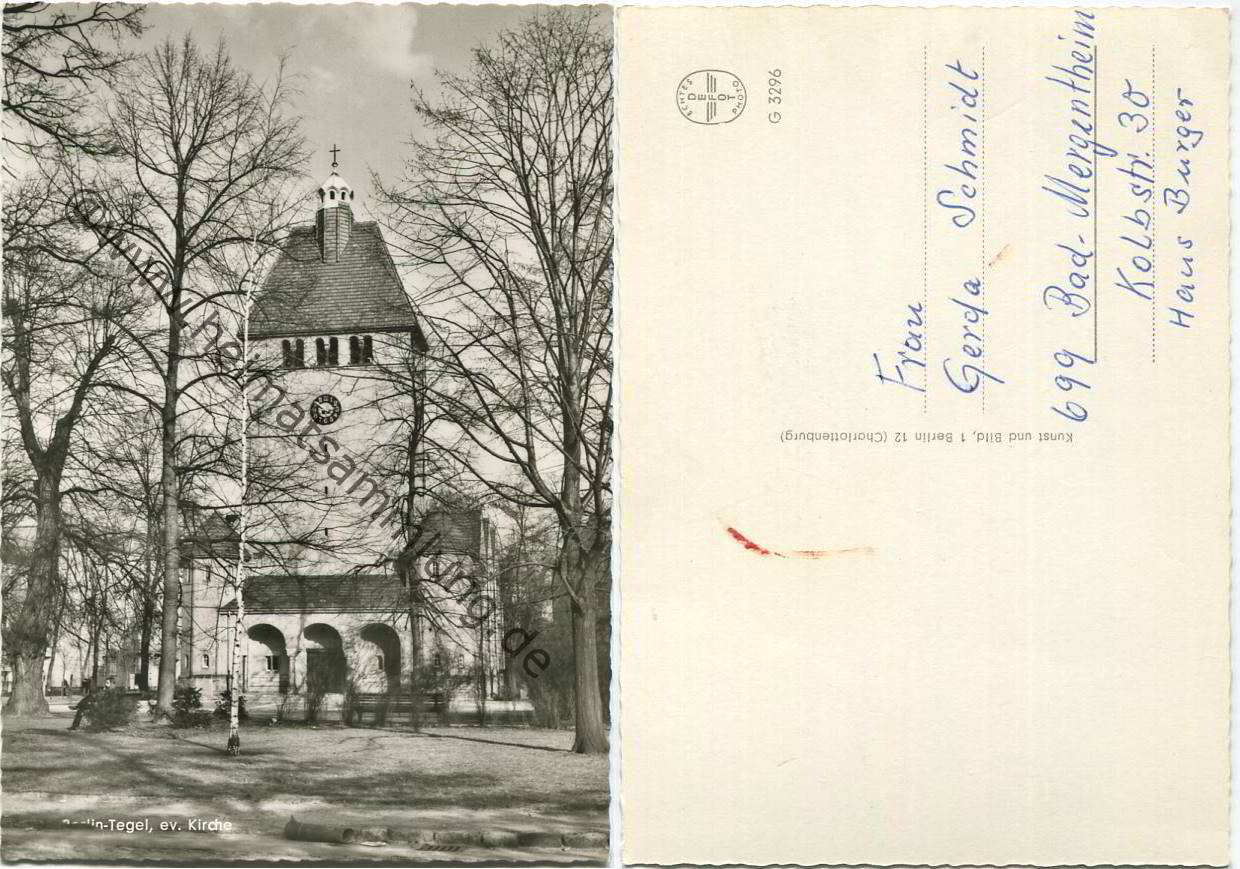 © www.heimatsammlung.de
Berlin-Tegel, ev. Kirche
ECHTES
DEFOT
PHOTO
G 3296
Frau
Gerda Schmidt
699 Bad-Mergentheim
Kolbstr. 30
Haus Burger
Kunst und Bild, 1 Berlin 12 (Charlottenburg)